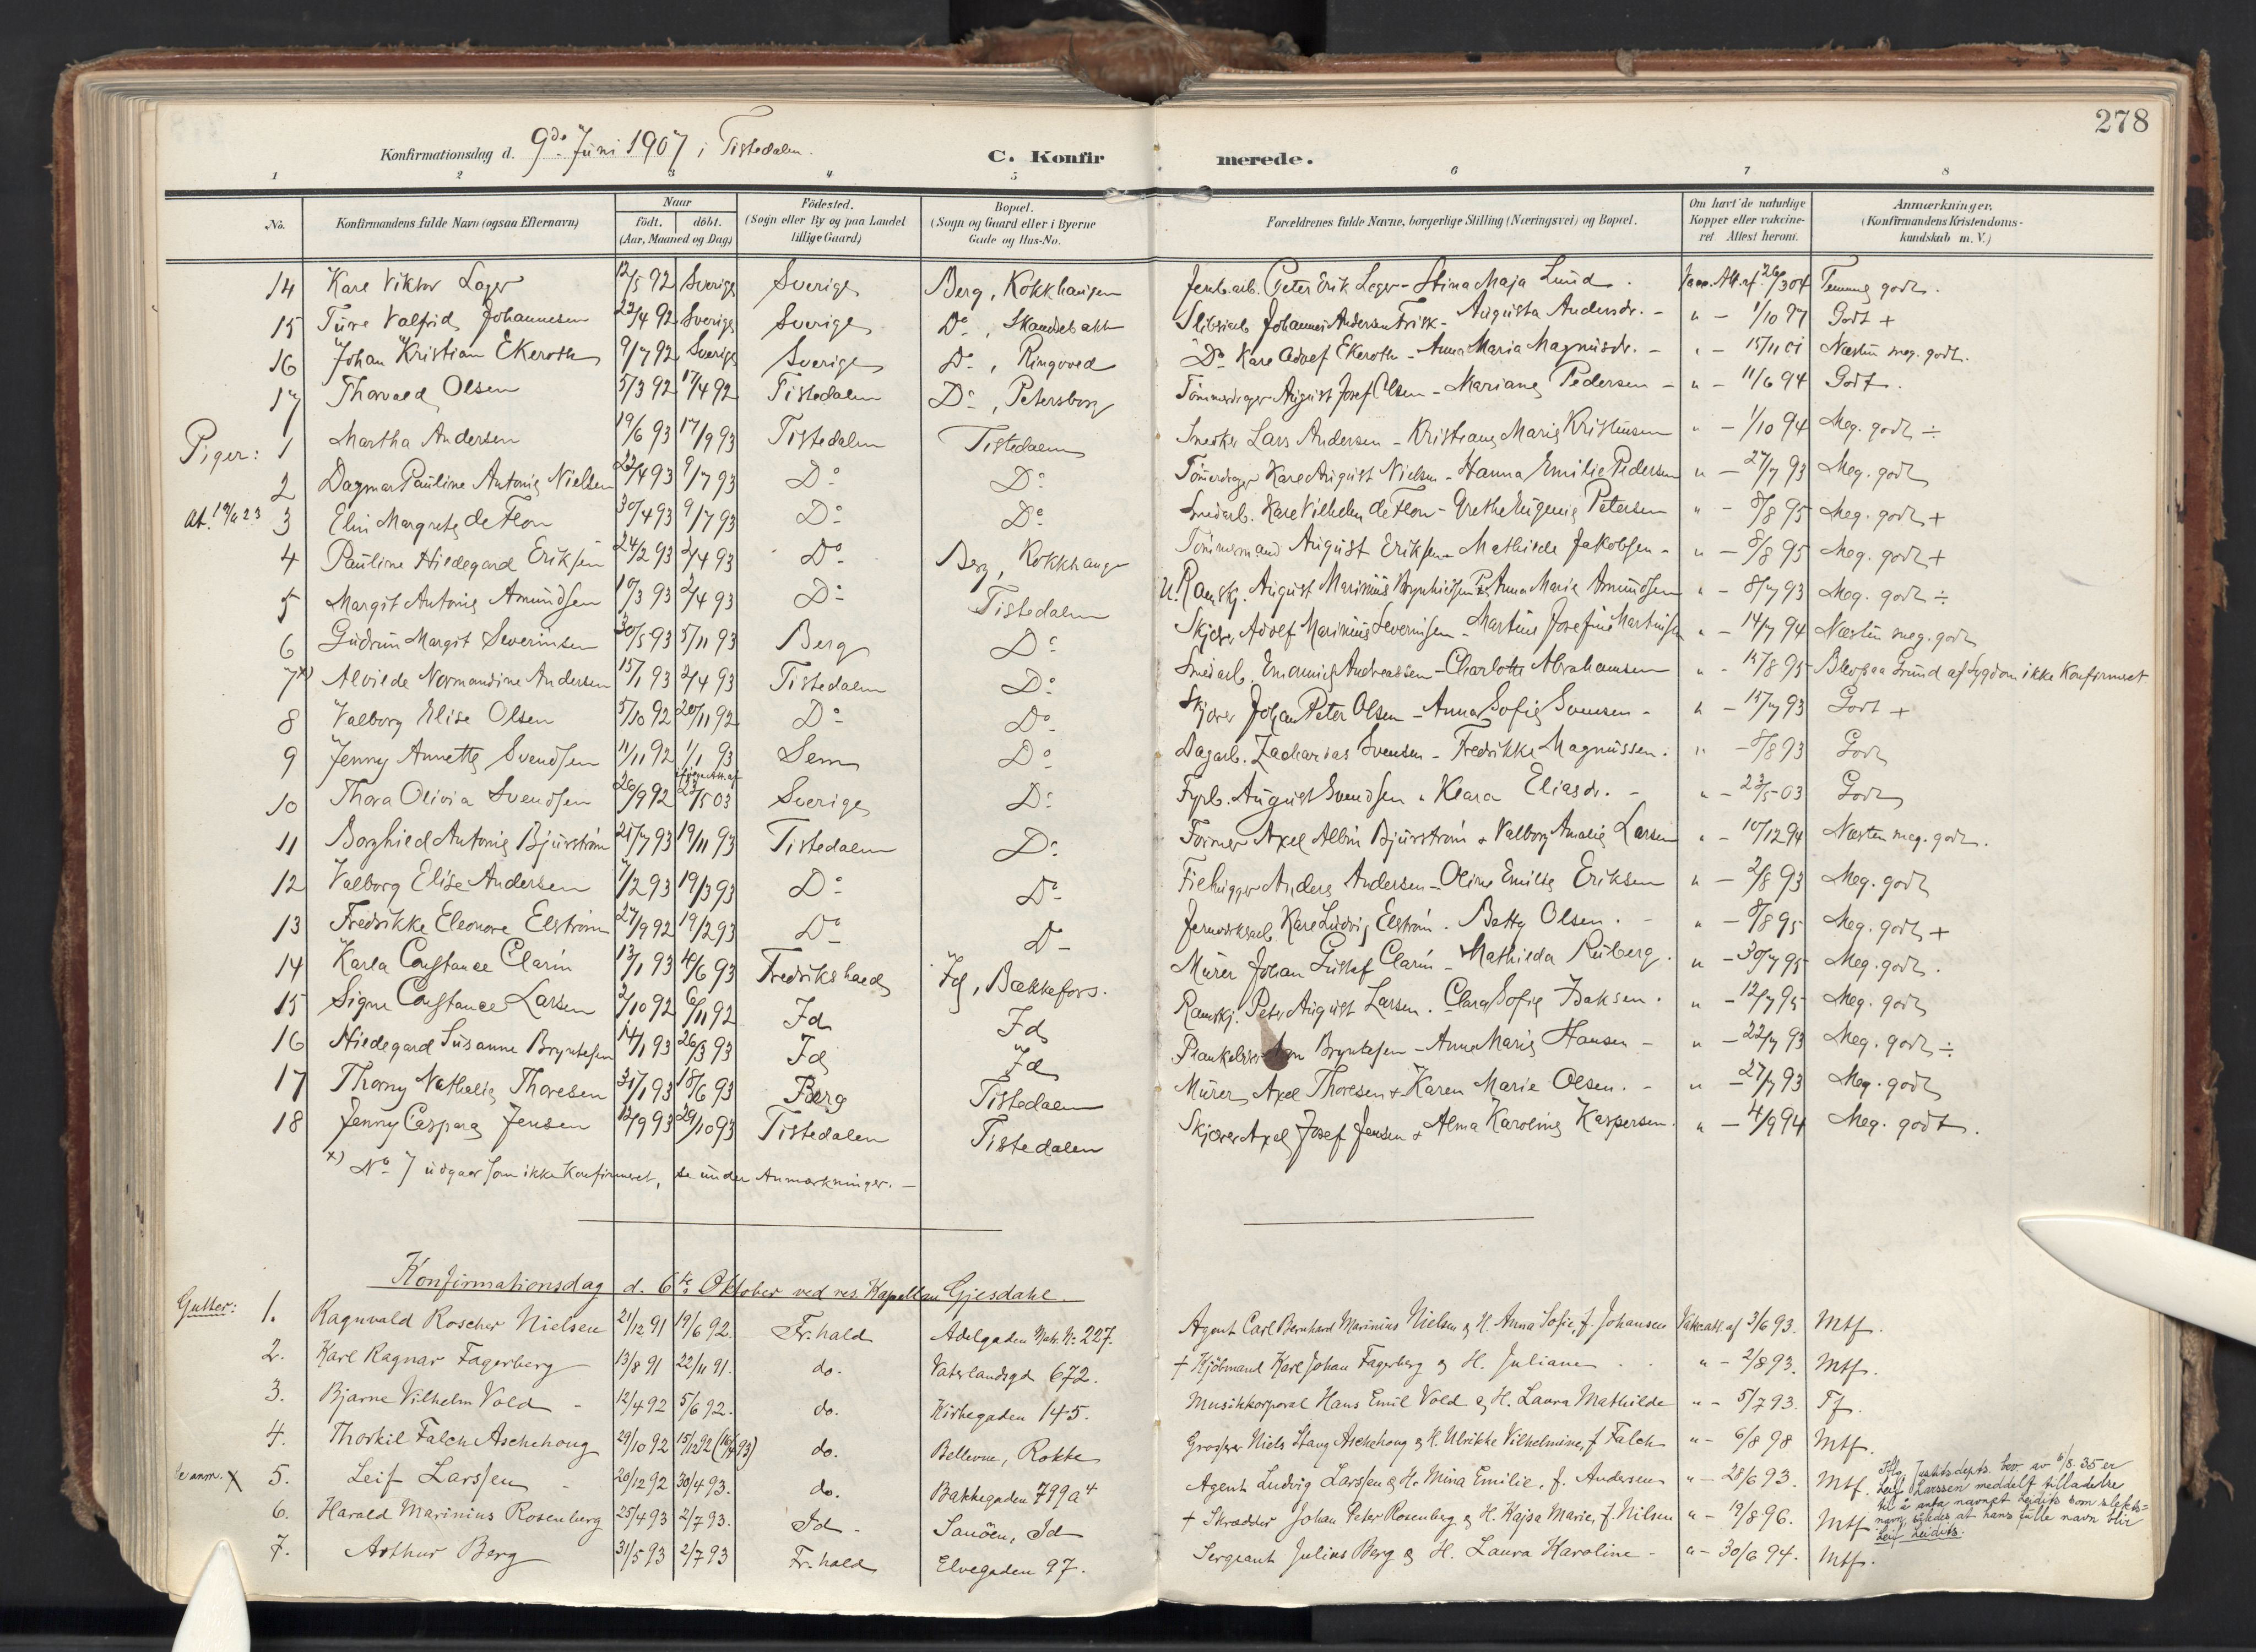 278
Konfirmationsdag d. 9de Juni 1907 i Tistedalen.
C. Konfirmerede.
1 2 3 4 5 6 7 8
No. Konfirmandens fulde Navn (ogsaa Efternavn) Naar født. døbt. (Aar, Maaned og Dag) Fødested. (Sogn eller By og paa Landet tillige Gaard) Bopæl. (Sogn og Gaard eller i Byerne Gade og Hus-No. Forældrenes fulde Navne, borgerlige Stilling (Næringsvei) og Bopæl. Om havt de naturlige Kopper eller vakcineret Attest herom. Anmærkninger. (Konfirmandens Kristendomskundskab m. V.)
14 Karl Viktor Lager 12/5 92 Sverige Sverige Berg, Kokkhaugen Jernb.arb. Peter Erik Lager - Stina Maja Lund. Vacc. Att. af 26/3 04 Temmel godt.
15 Ture Valfrid Johannesen 22/4 92 Sverige Sverige Do, Slibriarb Johannes Andersen Frisk - Augusta Andersdr. - " - 1/10 97 Godt +
16 Johan Kristian Ekeroth 9/7 92 Sverige Sverige Do, Ringoved Do Karl Adolf Ekeroth - Anna Maria Magnusdr. - " - 15/11 01 Næsten meg. godt.
17 Thorvald Olsen 5/3 92 17/4 92 Tistedalen Do, Petersborg Tömmerdrager August Josef Olsen - Mariane Pedersen - " - 11/6 94 Godt.
Piger: 1 Martha Andersen 19/6 93 17/9 93 Tistedalen Tistedalen Snedker Lars Andersen - Kristiane Marie Kristiansen " - 1/10 94 Meg. godt ÷
2 Dagmar Pauline Antonie Nielsen 22/4 93 9/7 93 Do Do Tömerdrager Karl August Nielsen - Hanna Emilie Pedersen " - 27/7 93 Meg. godt
At. 19/6 23 3 Elin Margrete de Flon 30/4 93 9/7 93 Do Do Smedarb. Karl Vilhelm de Flon - Grethe Eugenie Petersen " - 8/8 95 Meg. godt +
4 Pauline Hildegard Eriksen 24/2 93 2/4 93 Do Berg, Kokkhaugen Tömmermand August Eriksen - Mathilde Jakobsen - " - 8/8 95 Meg. godt +
5 Margit Antonie Amundsen 10/3 93 2/4 93 Do Tistedalen U. Ramskj. August Marinius Brynhildsen Pg Anna Marie Amundsen " - 8/7 93 Meg. godt ÷
6 Gudrun Margit Severinsen 30/5 93 5/11 93 Berg Do Skjærer Adolf Marinius Severinsen - Martine Josefine Martinsen " - 14/7 94 Næsten meg. godt
7x) Alvilde Normandine Andersen 15/1 93 2/4 93 Tistedalen Do Smedarb. Emanuel Andreassen - Charlotte Abrahamsen " - 15/8 95 Blev paa Grund af Sygdom ikke Konfirmeret
8 Valborg Elise Olsen 5/10 92 20/11 92 Do Do Skjærer Johan Peter Olsen - Anna Sofie Svensen - " - 15/7 93 Godt +
9 Jenny Annette Svendsen 11/11 92 1/1 93 Sem Do Dagarb. Zacharias Svensen - Fredrikke Magnussen. " - 8/8 93 Godt
10 Thora Olivia Svendsen 26/9 92 23/5 03 Sverige Do Fyrb. August Svendsen " Klara Eliasdr. - " - 23/5 03 Godt
11 Borghild Antonie Bjurström 25/7 93 19/11 93 Tistedalen Do Former Axel Albin Bjurström + Valborg Amalie Larsen " - 10/12 94 Næsten meg. godt.
12 Valborg Elise Andersen 7/2 93 19/3 93 Do Do Filhugger Anders Andersen - Oline Emilie Eriksen " - 2/8 93 Meg. godt
13 Fredrikke Eleonore Elström 27/9 92 19/2 93 Do Do Jernverksarb. Karl Ludvig Elström - Betty Olsen. - " - 8/8 95 Meg. godt +
14 Karla Constance Clarin 13/1 93 4/6 93 Fredrikshald Id, Bækkefors. Murer Johan Gustaf Clarin - Mathilda Ruberg. " - 30/7 95 Meg. godt.
15 Signe Constance Larsen 2/10 92 6/11 92 Id Id Ramskj. Peter August Larsen - Clara Sofie Isaksen. " - 12/7 95 Meg. godt
16 Hildegard Susanne Bryntesen 14/1 93 26/3 93 Id Id Bryntesen - Anna Marie Hansen - " - 22/7 93 Meg. godt ÷
17 Thorny Nathalie Thoresen 31/1 93 18/6 93 Berg Tistedalen Murer Axel Thoresen + Karen Marie Olsen. - " - 27/7 93 Meg. godt
18 Jenny Caspara Jensen 12/9 93 29/10 93 Tistedalen Tistedalen Skjærer Axel Josef Jensen + Alma Karoline Kaspersen. " - 4/9 94 Meg. godt.
x) No 7 udgaar som ikke Konfirmeret, se under Anmærkninger. -
Konfirmationsdag d. 6te Oktober ved res. Kapellan Gjesdahl.
Gutter: 1. Ragnvald Roscher Nielsen 21/12 91 19/6 92. Fr.hald Adelgaden Matr. No 227. Agent Carl Bernhard Marinius Nielsen & H. Anna Sofie, f. Johansen Vakc.att. af 3/6 93. Mtf.
2. Karl Ragnar Fagerberg 13/8 91 22/11 91. do. Vaterlandsgd 672. + Kjöbmand Karl Johan Fagerberg & H. Juliane " - 2/8 93. Mtf.
3. Bjarne Vilhelm Vold - 12/4 92 5/6 92. do. Kirkegaden 145. Musikkorporal Hans Emil Vold & H. Laura Mathilde " - 5/7 93. Tf.
4. Thorkil Falch Aschehoug 29/10 92 15/12 92 do. Bellevue, Rokke Grosser Niels Stang Aschehoug & H. Ulrikke Vilhelmine, f. Falch " - 6/8 98 Mtf.
Se anm. x 5. Leif Larssen - 20/12 92 30/4 93. do. Bakkegaden 799a4 Agent Ludvig Larssen & H. Mina Emilie, f. Andersen " - 28/6 93. Mtf.
Iflg. Justitsdepts. bev av 11/8.35 er
Leif Larssen meddelt tilladelse
til å anta navnet Leidits som slekts=
navn, således at hans fulle navn blir
Leif Leidits.
6. Harald Marinius Rosenberg 25/4 93 2/7 93. Id - Sauöen, Id + Skrædder Johan Peter Rosenberg & H. Kajsa Marie, f. Nilsen " - 19/8 96. Mtf.
7. Arthur Berg 31/5 93 2/7 93 Fr.hald Elvegaden 97. Sergeant Julius Berg & H. Laura Karoline - " - 30/6 94. Mtf.